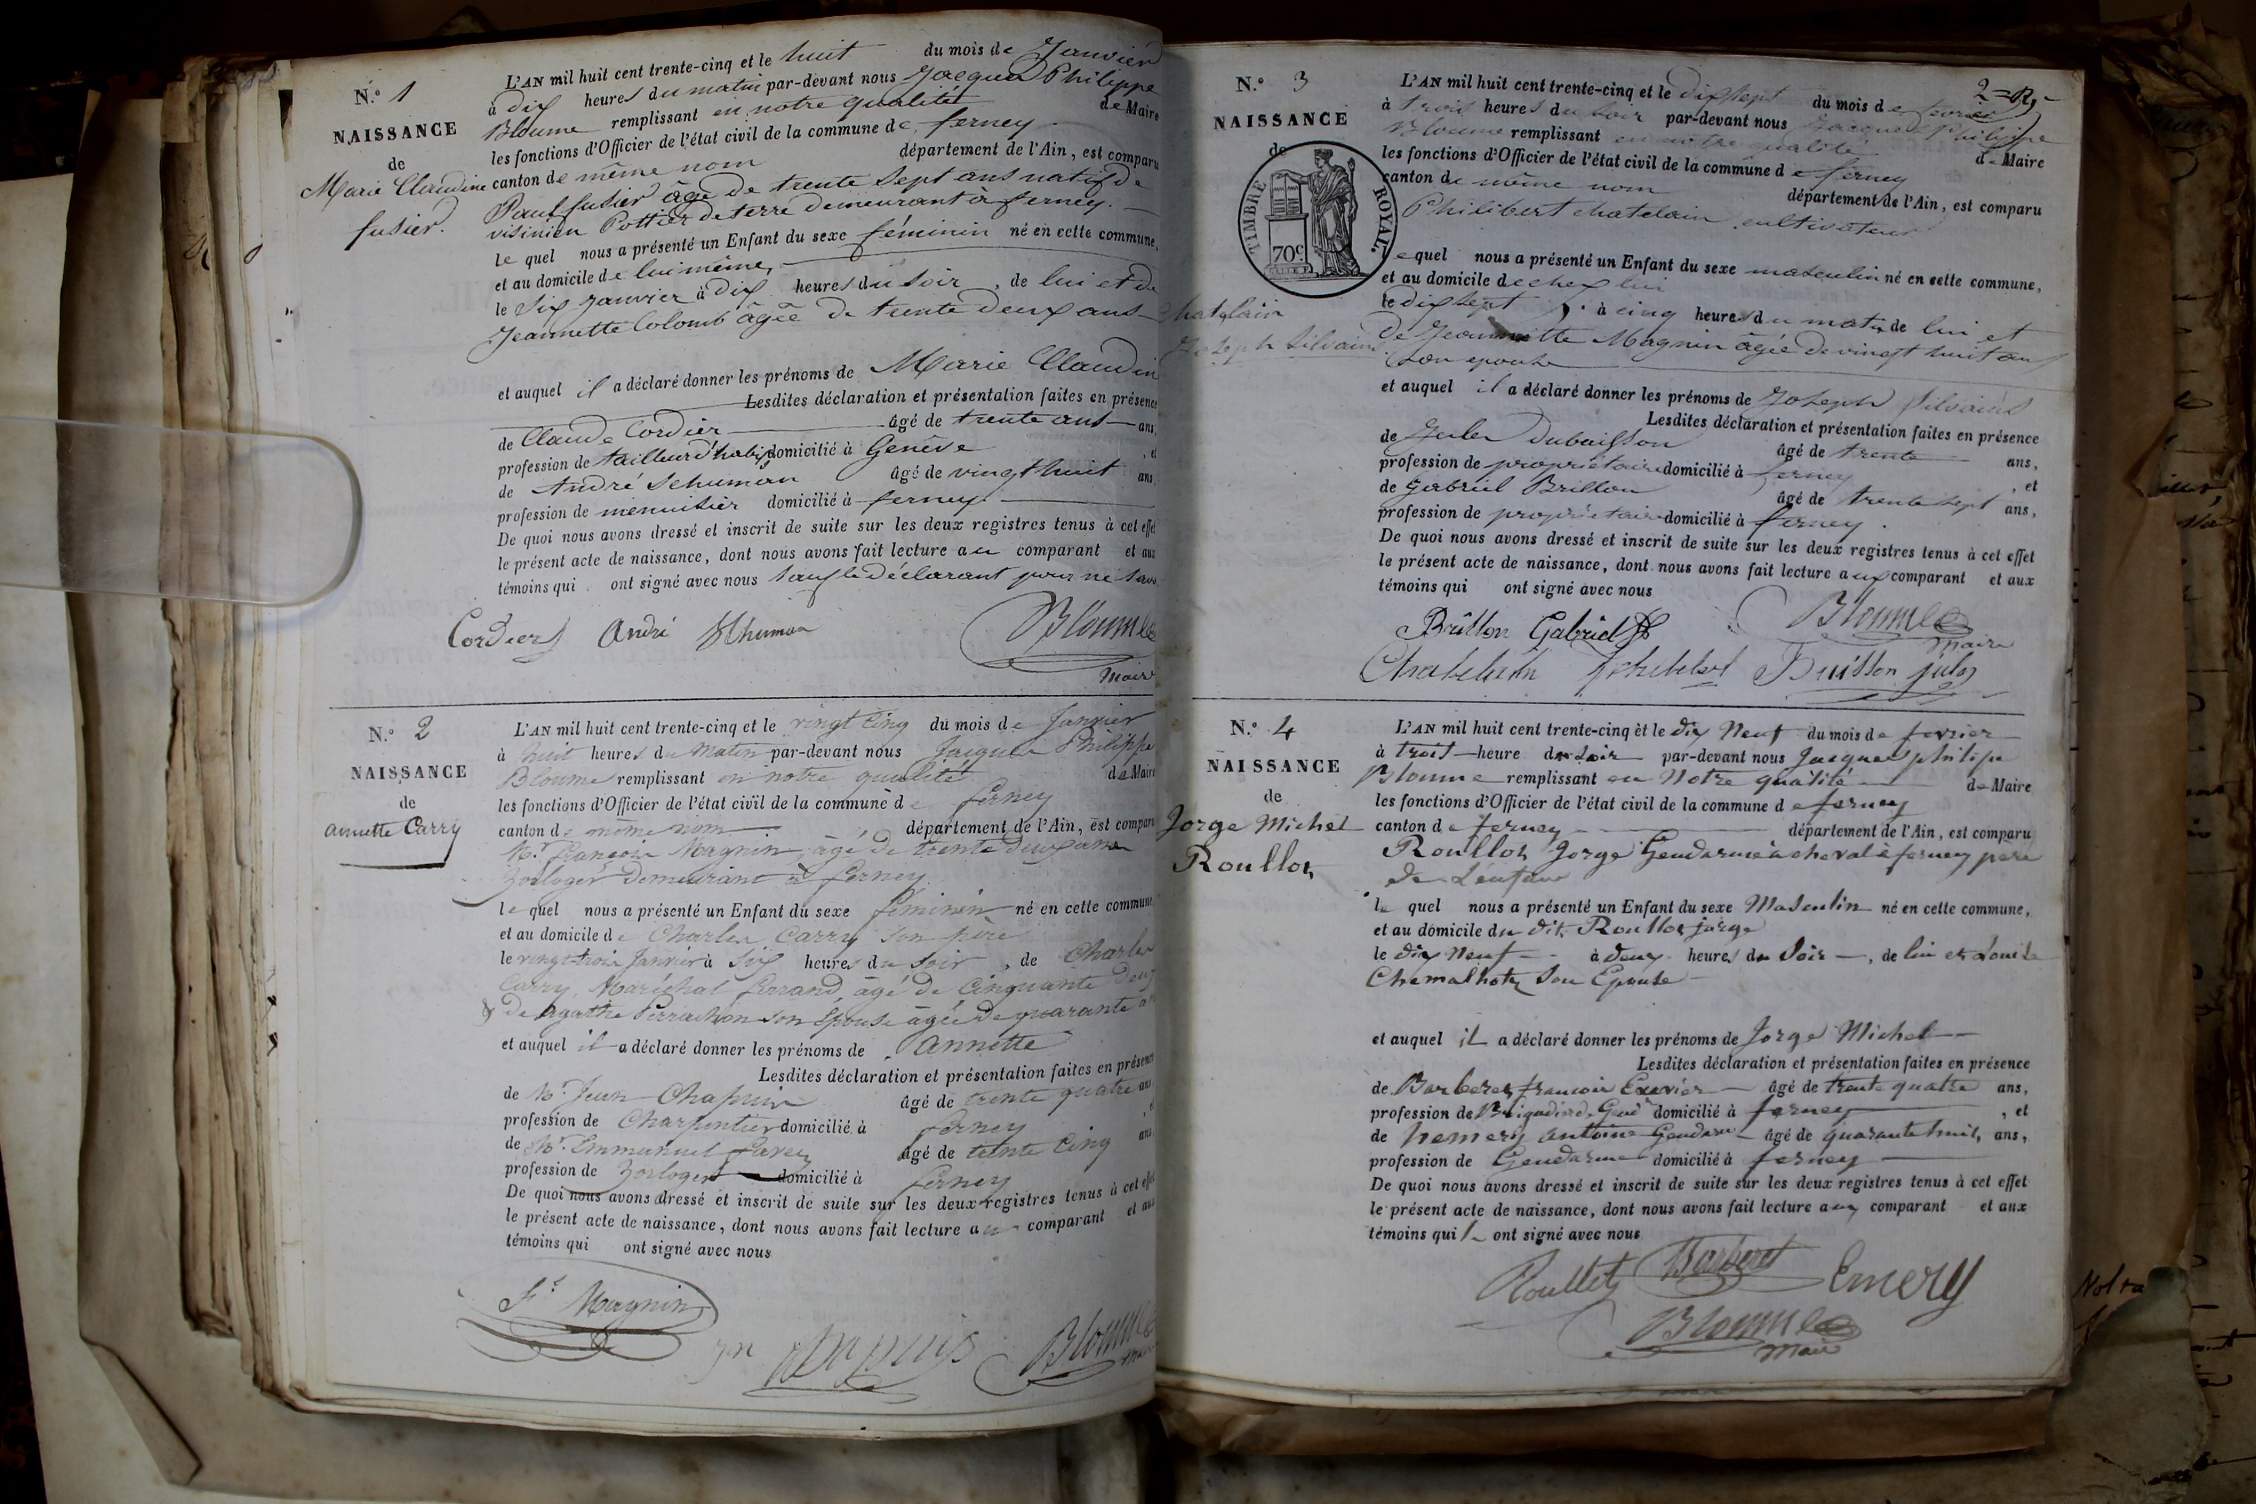 N.º 1
NAISSANCE
de
Marie Claudine
fusier.
L'AN mil huit cent trente-cinq et le huit du mois de Janvier
à dix heures du matin par-devant nous Jacques Philippe
Bloume remplissant en notre qualité de Maire
les fonctions d'Officier de l'état civil de la commune de ferney
canton de même nom département de l'Ain, est comparu
Paul fusier âgé de trente sept ans natif de
visinieu Pottier de terre demeurant à ferney.
le quel nous a présenté un Enfant du sexe féminin né en cette commune,
et au domicile de lui même,
le Six Janvier à dix heures du soir, de lui et de
Jeannette Colomb âgée de trente deux ans
et auquel il a déclaré donner les prénoms de Marie Claudin
Lesdites déclaration et présentation faites en présence
de Claude Cordier âgé de trente ans ans,
profession de tailleur d'habis domicilié à Genève, et
de André Schuman âgé de vingt huit ans,
profession de menuisier domicilié à ferney.
De quoi nous avons dressé et inscrit de suite sur les deux registres tenus à cet effet
le présent acte de naissance, dont nous avons fait lecture au comparant et aux
témoins qui ont signé avec nous sauf le déclarant pour ne savo
Cordier André Schuman Bloume
Maire
N.º 2
NAISSANCE
de
annette Carry
L'AN mil huit cent trente-cinq et le vingt Cinq du mois de Janvier
à huit heures du Matin par-devant nous Jacques Philippe
Bloume remplissant en notre qualité de Maire
les fonctions d'Officier de l'état civil de la commune de ferney
canton de même nom département de l'Ain, est comparu
Mr. françois Magnin, âgé de trente deux ans
horloger demeurant à ferney
le quel nous a présenté un Enfant du sexe féminin né en cette commune
et au domicile de Charles Carry son père
le vingt-trois Janvier à Six heures du Soir, de Charles
Carry, Maréchal ferrand, âgé de Cinquante Deux
& de Agathe Perrachon son Épouse âgée de quarante an
et auquel il a déclaré donner les prénoms de annette
Lesdites déclaration et présentation faites en présence
de Mr. Jean Chapuis âgé de trente quatre ans
profession de Charpentier domicilié à ferney, et
de Mr. Emmanuel âgé de trente Cinq ans
profession de horloger domicilié à ferney
De quoi nous avons dressé et inscrit de suite sur les deux registres tenus à cet effet
le présent acte de naissance, dont nous avons fait lecture au comparant et aux
témoins qui ont signé avec nous
Fs. Magnin
Jn chapuis Bloume
Maire
N.º 3
NAISSANCE
de
TIMBRE ROYAL.
70c.
Chatelain
Joseph Silvain
2=
L'AN mil huit cent trente-cinq et le dix sept du mois de fevrier
à trois heures du soir par-devant nous Jacques Philippe
Bloume remplissant en notre qualité de Maire
les fonctions d'Officier de l'état civil de la commune de ferney
canton de même nom département de l'Ain, est comparu
Philibert chatelain cultivateur
lequel nous a présenté un Enfant du sexe masculin né en cette commune,
et au domicile de chez lui
le dix sept à cinq heures du matin de lui et
de Jeannette Magnin âgée de vingt huit ans
son epouse
et auquel il a déclaré donner les prénoms de Joseph Silvain
Lesdites déclaration et présentation faites en présence
de Jules Dubuisson âgé de trente ans,
profession de propriétaire domicilié à ferney, et
de Gabriel Brillon âgé de trente sept ans,
profession de propriétaire domicilié à ferney.
De quoi nous avons dressé et inscrit de suite sur les deux registres tenus à cet effet
le présent acte de naissance, dont nous avons fait lecture aux comparant et aux
témoins qui ont signé avec nous
Brillon Gabriel Bloume
Maire
Chatelain philibert Buisson jules
N.º 4
NAISSANCE
de
Jorge Michel
Roullot
L'AN mil huit cent trente-cinq et le dix Neuf du mois de fevrier
à trois heure du soir par-devant nous Jacques philipe
Bloume remplissant en Notre qualité de Maire
les fonctions d'Officier de l'état civil de la commune de ferney
canton de ferney département de l'Ain, est comparu
Roullot Jorge Gendarme à cheval à ferney père
de Lenfant
le quel nous a présenté un Enfant du sexe Masculin né en cette commune,
et au domicile du dit Roullot jorge
le dix Neuf à deux heures du Soir, de lui et Louise
Chemalhotz Son Epouse
et auquel il a déclaré donner les prénoms de Jorge Michel
Lesdites déclaration et présentation faites en présence
de Barberet françois Exavier âgé de trente quatre ans,
profession de Brigadier de Gend domicilié à ferney, et
de hemery antoine Gendarm âgé de quarante huit, ans,
profession de Gendarme domicilié à ferney
De quoi nous avons dressé et inscrit de suite sur les deux registres tenus à cet effet
le présent acte de naissance, dont nous avons fait lecture aux comparant et aux
témoins qui ont signé avec nous
Roullot Barberet Emery
Bloume
Maire